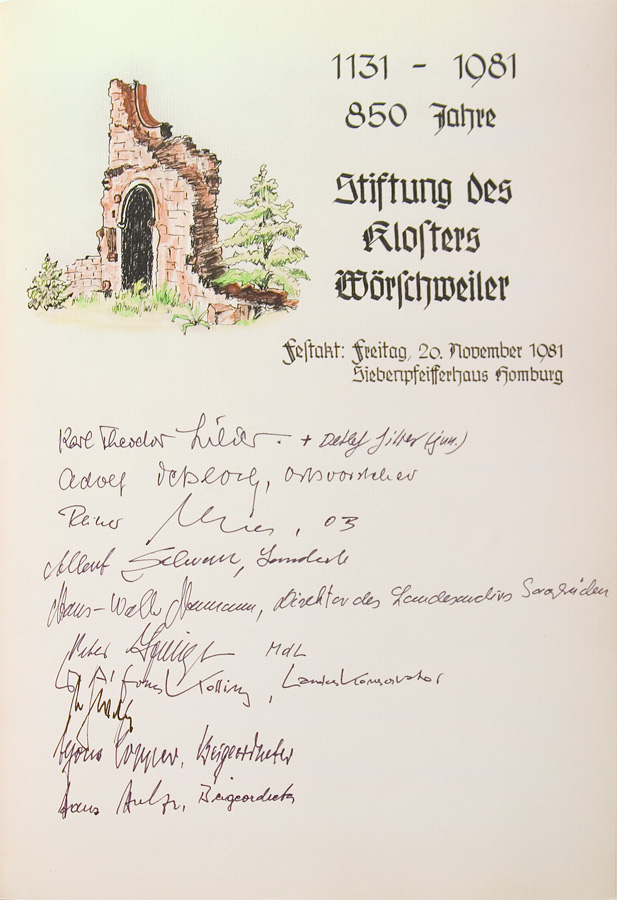 1131 - 1981
850 Jahre
Stiftung des
Klosters
Wörschweiler
Festakt: Freitag, 20. November 1981
Siebenpfeifferhaus Homburg
Karl Theodor + Detlef (jun.)
Adolf , Ortsvorsteher
Reiner , OB
Albert
Hans-Walter Herrmann, Direktor des Landesarchivs Saarbrücken
Peter MdL
Alfons Kolling, Landeskonservator
, Beigeordneter
Hans , Beigeordneter